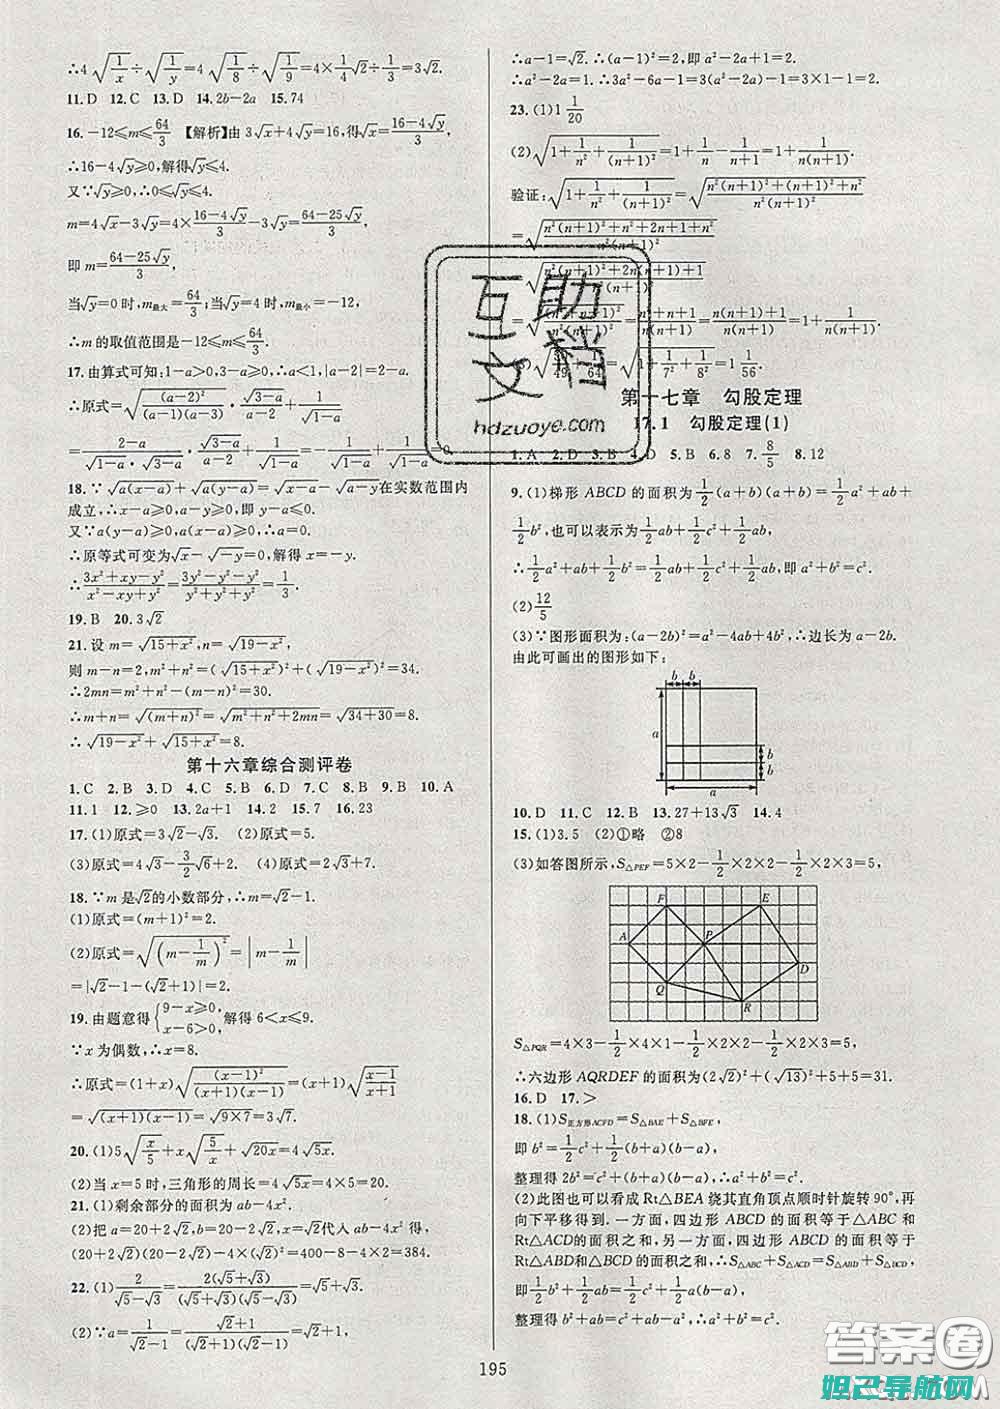 ∴4√(1/x)÷√(1/y)=4√(1/8)÷√(1/9)=4×(1/4)√2÷1/3=3√2.
11.D 12.C 13.D 14.2b-2a 15.74
16.-12≤m≤64/3 【解析】由3√x+4√y=16,得√x=(16-4√y)/3,
∴16-4√y≥0,解得√y≤4.
又∵√y≥0,∴0≤√y≤4.
m=4√x-3√y=4×(16-4√y)/3-3√y=(64-25√y)/3,
即m=(64-25√y)/3,
当√y=0时,m最大=64/3;当√y=4时,m最小=-12,
∴m的取值范围是-12≤m≤64/3.
17.由算式可知:1-a>0,3-a>0,∴a<1,|a-2|=2-a.
∴原式=√((a-2)²/((a-1)(a-3)))·√(3-a)/(a-2)+1/√(1-a)
=(2-a)/(√(1-a)·√(3-a))·√(3-a)/(a-2)+1/√(1-a)=-1/√(1-a)+1/√(1-a)=0
18.∵√(a(x-a))+√(a(y-a))=√(x-a)-√(a-y)在实数范围内
成立,∴x-a≥0,a-y≥0,即y≤a≤x.
又∵a(y-a)≥0,a(x-a)≥0,∴a=0.
∴原等式可变为√x-√(-y)=0,解得x=-y.
∴(3x²+xy-y²)/(x²-xy+y²)=(3y²-y²-y²)/(y²+y²+y²)=1/3.
19.B 20.3√2
21.设m=√(15+x²),n=√(19-x²),
则m-n=2,m²+n²=(√(15+x²))²+(√(19-x²))²=34.
∴2mn=m²+n²-(m-n)²=30.
∴m+n=√((m+n)²)=√(m²+n²+2mn)=√(34+30)=8.
∴√(19-x²)+√(15+x²)=8.
第十六章综合测评卷
1.C 2.B 3.D 4.C 5.B 6.D 7.C 8.B 9.B 10.A
11.1 12.≥0 13.2a+1 14.2 15.7 16.23
17.(1)原式=3√2-√3. (2)原式=5.
(3)原式=4√3-(3/2)√6+2. (4)原式=7+2√2.
18.∵m是√2的小数部分,∴m=√2-1.
(1)原式=(m+1)²=2.
(2)原式=√((m-1/m)²)=|m-1/m|
=|√2-1-(√2+1)|=2.
19.由题意得{9-x≥0, x-6>0, 解得6<x≤9.
∵x为偶数,∴x=8.
∴原式=(1+x)√((x-1)²/((x+1)(x-1)))=(x+1)√((x-1)/(x+1))
=√((x+1)(x-1))=√(9×7)=3√7.
20.(1)5√(x/5)+x√(5/x)+√(20x)=4√(5x).
(2)当x=5时,三角形的周长=4√(5x)=4×5=20.
21.(1)剩余部分的面积为ab-4x².
(2)把a=20+2√2,b=20-2√2,x=√2代入ab-4x²得,
(20+2√2)(20-2√2)-4×(√2)²=400-8-4×2=384.
22.(1)2/(√5-√3)=2(√5+√3)/((√5+√3)(√5-√3))=√5+√3.
(2)∵a=1/(√2-1)=(√2+1)/((√2-1)(√2+1))=√2+1,
∴a-1=√2.∴(a-1)²=2,即a²-2a+1=2.
∴a²-2a=1.∴3a²-6a-1=3(a²-2a)-1=3×1-1=2.
23.(1)1 1/20
(2)√(1+1/n²+1/(n+1)²)=1+1/n-1/(n+1)=1+1/(n(n+1)).
验证:√(1+1/n²+1/(n+1)²)=√((n²(n+1)²+(n+1)²+n²)/(n²(n+1)²))
=√((n²(n+1)²+n²+2n+1+n²)/(n²(n+1)²))
√((n²(n+1)²+2n(n+1)+1)/(n²(n+1)²))
=(n²+n+1)/(n(n+1))=(n(n+1)+1)/(n(n+1))=1+1/(n(n+1)).
=√(1+1/7²+1/8²)=1 1/56
第十七章 勾股定理
17.1 勾股定理(1)
1.A 2.D 3.B 4.D 5.B 6.8 7.8/5 8.12
9.(1)梯形ABCD的面积为1/2(a+b)(a+b)=1/2a²+ab+
1/2b²,也可以表示为1/2ab+1/2c²+1/2ab,
∴1/2a²+ab+1/2b²=1/2ab+1/2c²+1/2ab,即a²+b²=c².
(2)12/5
(3)∵图形面积为:(a-2b)²=a²-4ab+4b²,∴边长为a-2b.
由此可画出的图形如下:
b b
a
b
b
a
10.D 11.C 12.B 13.27+13√3 14.4
15.(1)3.5 (2)①略 ②8
(3)如答图所示,S△PEF=5×2-1/2×2×2-1/2×2×3=5,
F E
A P
D
Q
R
S△PQR=4×3-1/2×4×1-1/2×2×2-1/2×2×3=5,
∴六边形AQRDEF的面积为(2√2)²+(√13)²+5+5=31.
16.D 17.>
18.(1)S正方形ACFD=S△BAE+S△BFE,
即b²=1/2c²+1/2(b+a)(b-a),
整理得2b²=c²+(b+a)(b-a),∴a²+b²=c².
(2)此图也可以看成Rt△BEA绕其直角顶点顺时针旋转90°,再
向下平移得到.一方面,四边形ABCD的面积等于△ABC和
Rt△ACD的面积之和,另一方面,四边形ABCD的面积等于
Rt△ABD和△BCD的面积之和,∴S△ABC+S△ACD=S△ABD+S△BCD,
即1/2b²+1/2ab=1/2c²+1/2a(b-a),
整理得b²+ab=c²+a(b-a),b²+ab=c²+ab-a²,∴a²+b²=c².
195
互助
文档
hdzuoye.com
答案圈
妲己导航网